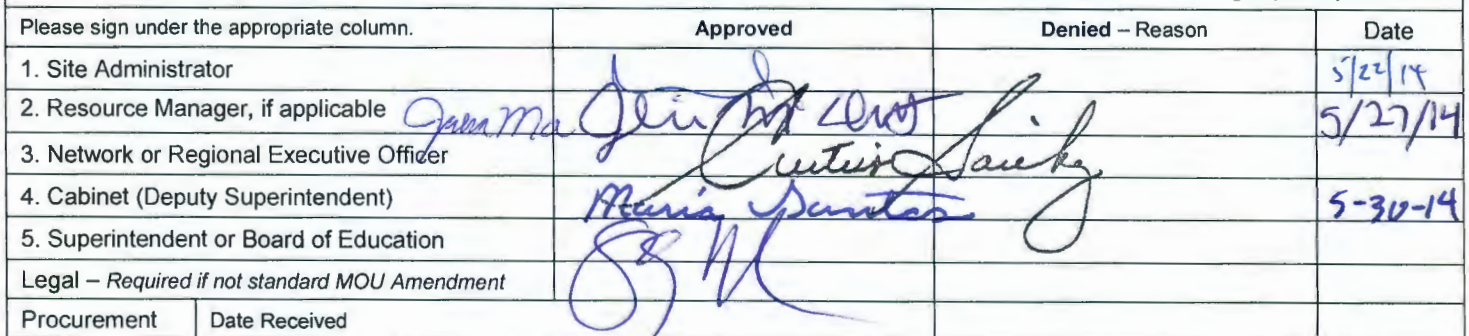 Please sign under the appropriate column. Approved Denied – Reason Date
1. Site Administrator 5/22/14
2. Resource Manager, if applicable 5/27/14
3. Network or Regional Executive Officer Curtiss Sarikey
4. Cabinet (Deputy Superintendent) Maria Santos 5-30-14
5. Superintendent or Board of Education
Legal – Required if not standard MOU Amendment
Procurement Date Received